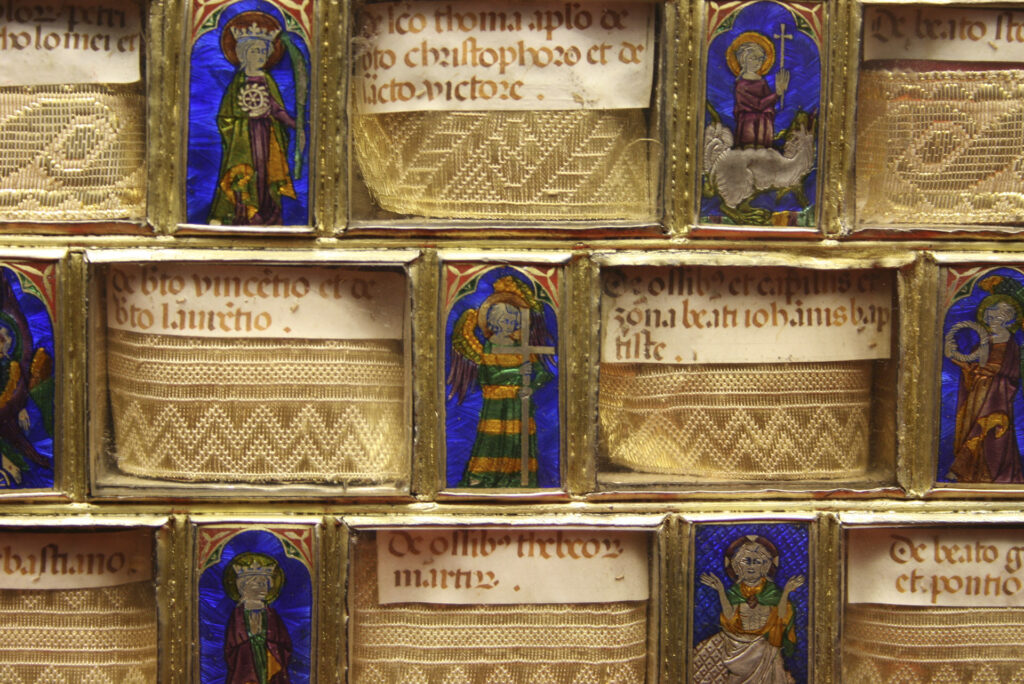 petri
tholomei et
De sco thoma aplo de
bto christophoro et de
scto victore .
De beato
de bto vincẽtio et de
bto laurẽtio .
De ossibꝫ et
zõna beati iohãnis bap
tiste .
bastiano .
De ossibꝫ thebeoꝝ
martirꝝ .
De beato g
et pontio